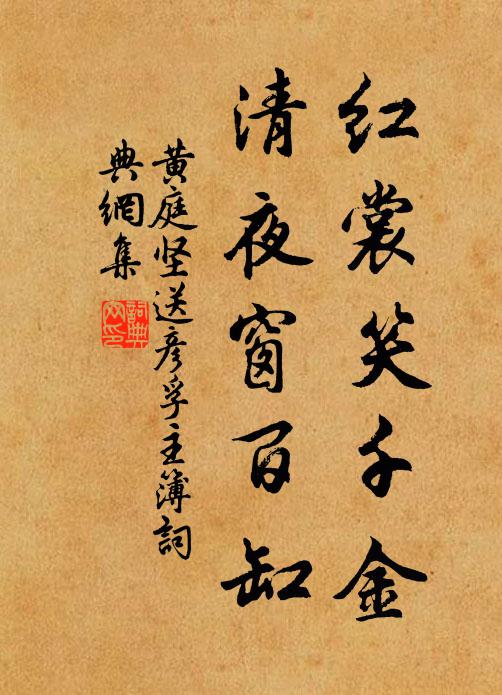 红裳笑千金
清夜窗百缸
黄庭坚送彦孚主簿詞
典網集
詞典
网印